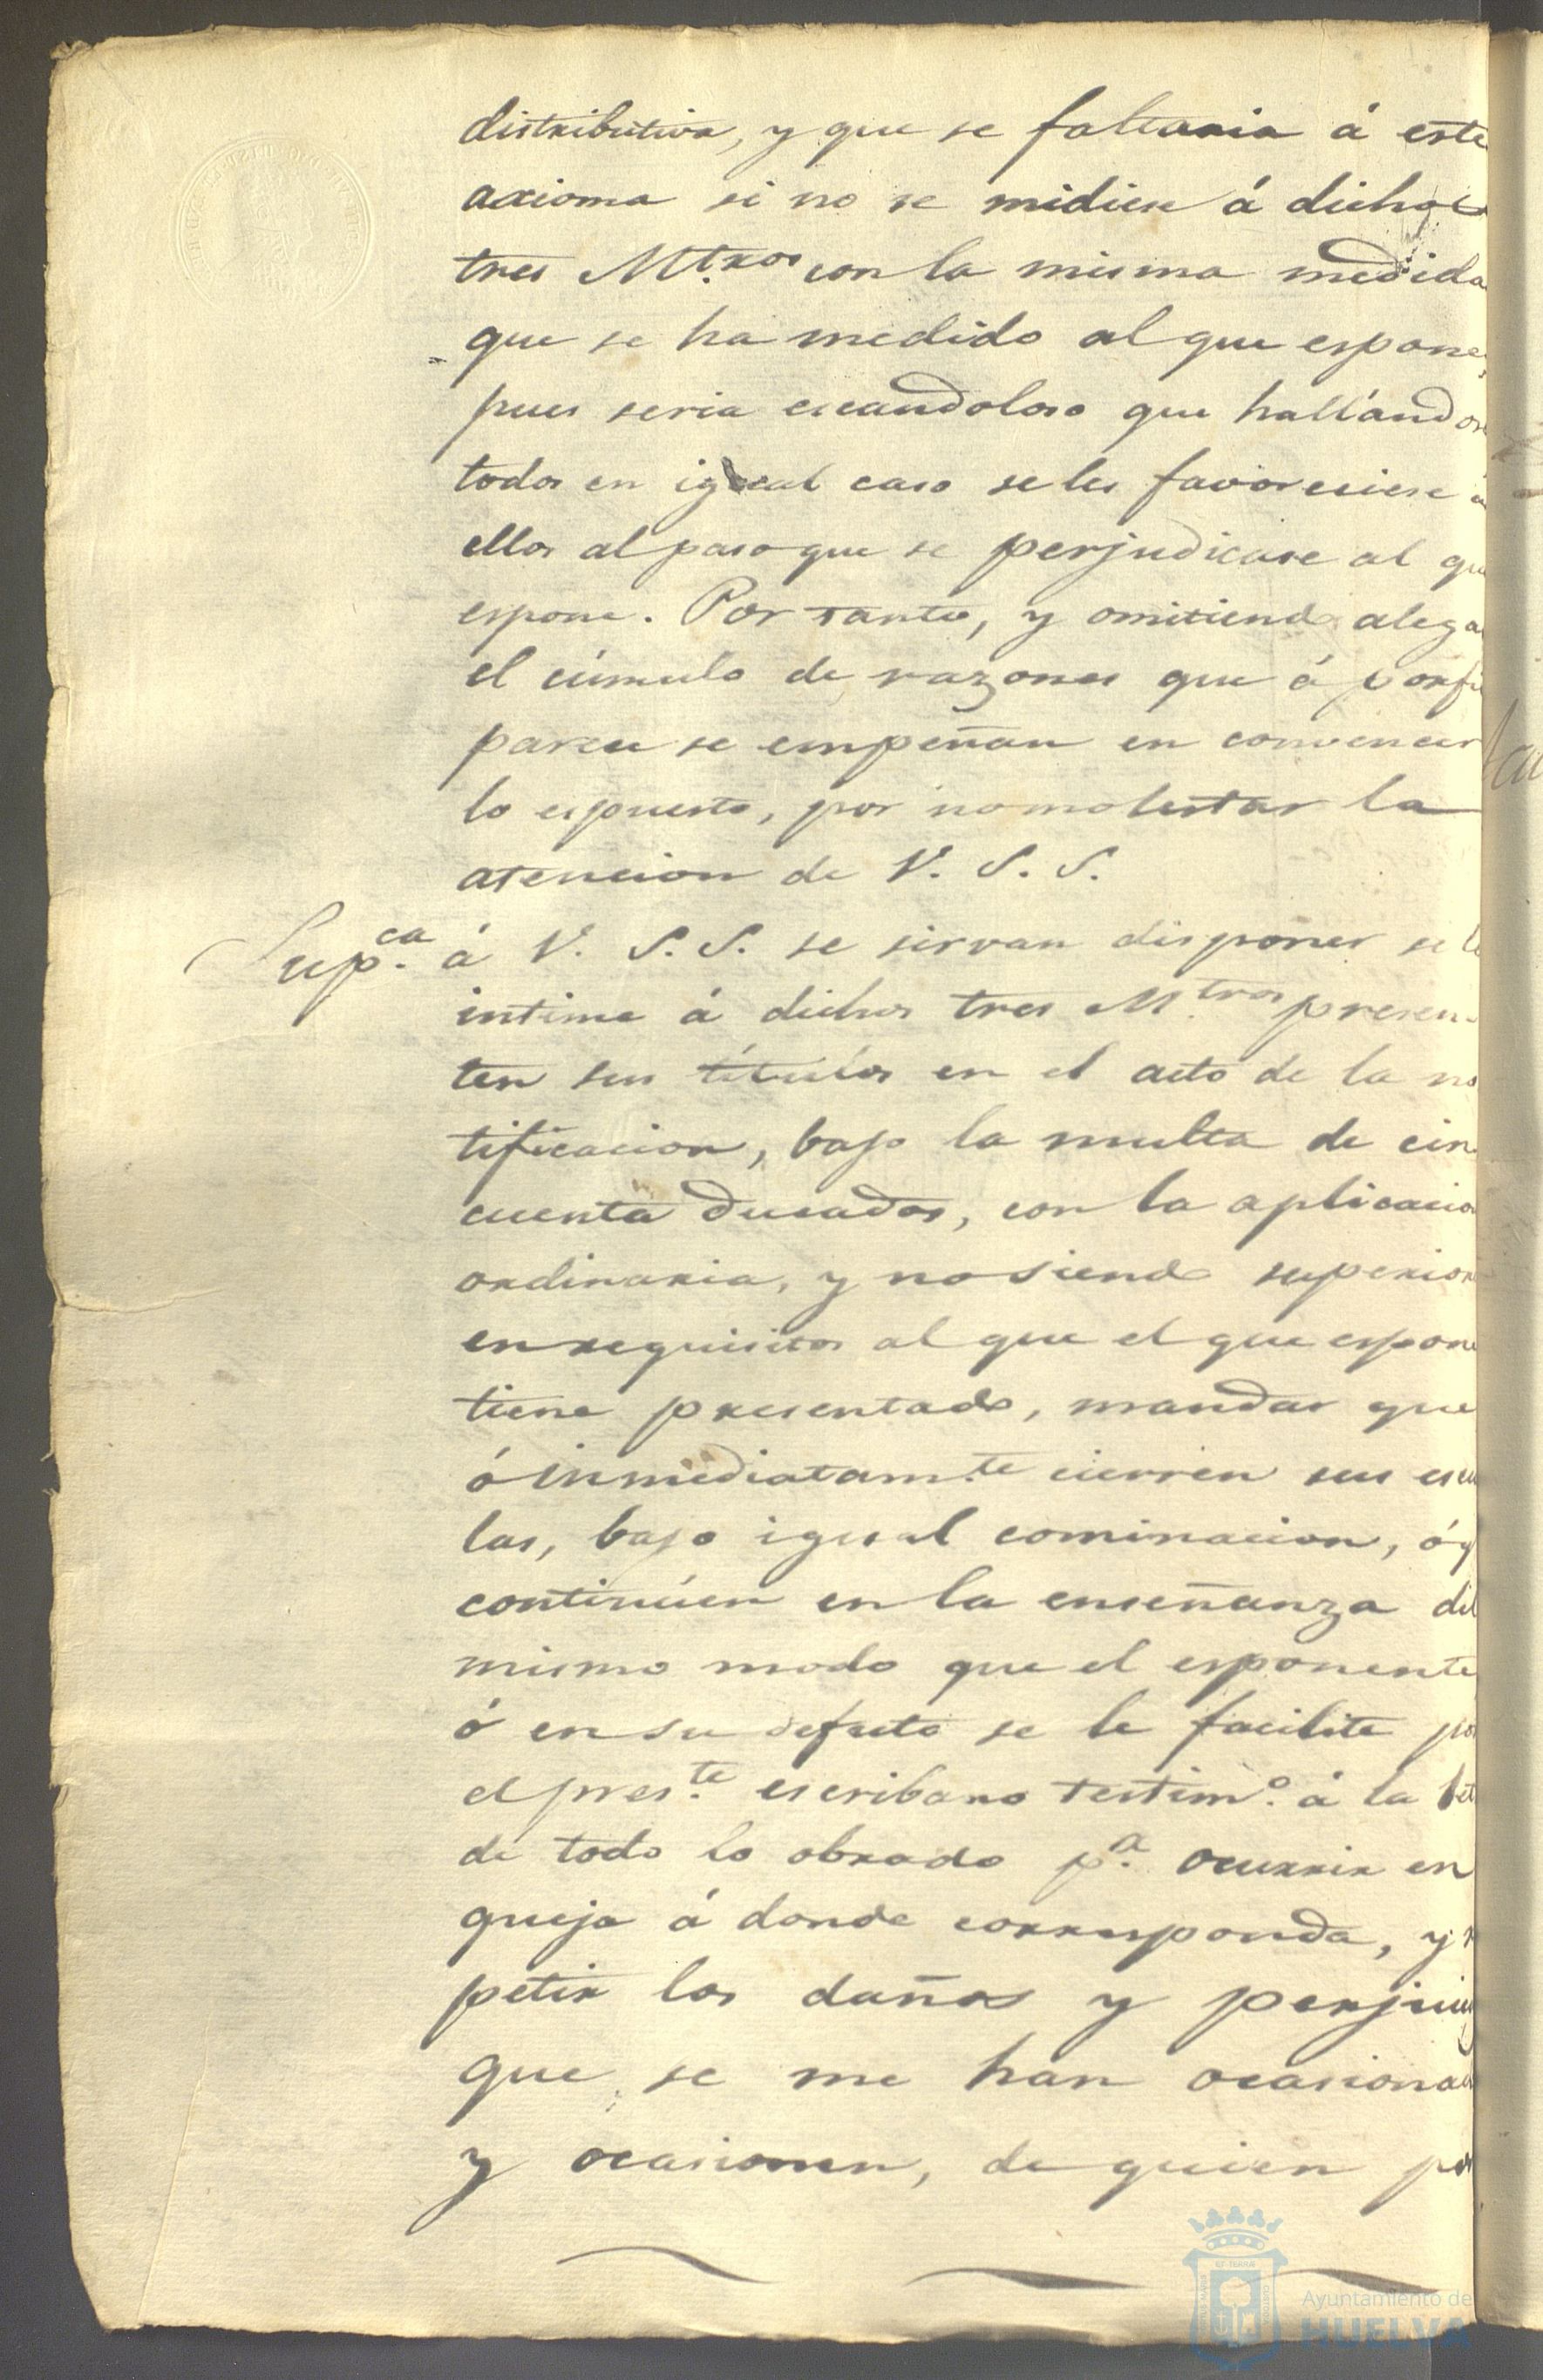 distributiva, y que se faltaria á este
axioma si no se midiese á dichos
tres Mtros. con la misma medida
que se ha medido al que espone,
pues seria escandoloso que hallándose
todos en igual caso se les favoreciese á
ellos al paso que se perjudicase al que
espone. Por tanto, y omitiendo alegar
el cúmulo de razones que á porfi
parece se empeñan en convencer
lo espuesto, por no molestar la
atencion de V. S. S.
Supca. á V. S. S. se sirvan disponer se le
intime á dichos tres Mtros. presen-
ten sus títulos en el acto de la no
tificacion, bajo la multa de cin
cuenta ducados, con la aplicacion
ordinaria, y no siendo superior
en requisitos al que el que espone
tiene presentado, mandar que
ó inmediatamte. cierren sus escu
las, bajo igual cominacion, ó q
continúen en la enseñanza del
mismo modo que el esponente
ó en su defecto se le facilite por
el preste. escribano testimo. á la let
de todo lo obrado pa. ocurrir en
queja á donde corresponda, y r
petir los daños y perjuici
que se me han ocasionad
y ocasionen, de quien por
Ayuntamiento de
HUELVA